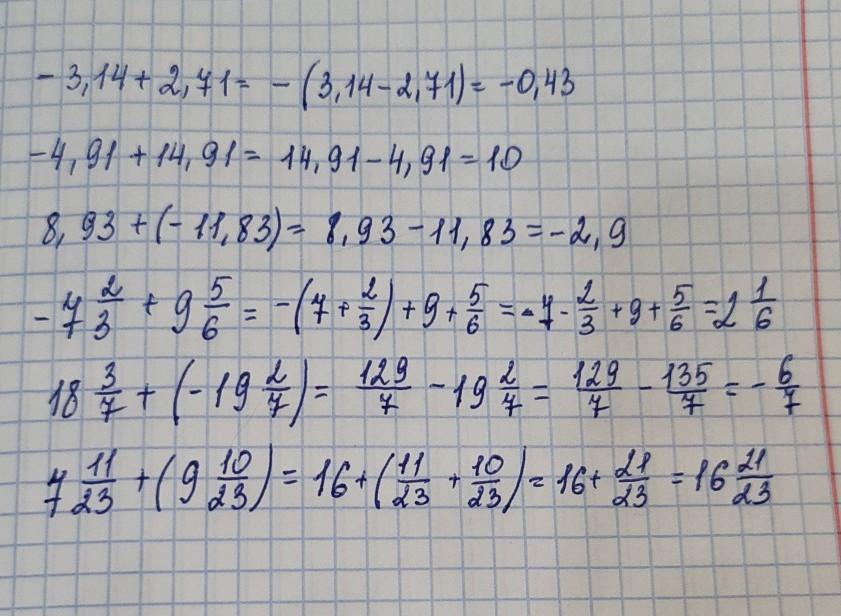 - 3,14 + 2,71 = - (3,14 - 2,71) = -0,43
-4,91 + 14,91 = 14,91 - 4,91 = 10
8,93 + (-11,83) = 8,93 - 11,83 = -2,9
-7 2/3 + 9 5/6 = -(7 + 2/3) + 9 + 5/6 = -7 - 2/3 + 9 + 5/6 = 2 1/6
18 3/7 + (-19 2/7) = 129/7 - 19 2/7 = 129/7 - 135/7 = - 6/7
7 11/23 + (9 10/23) = 16 + (11/23 + 10/23) = 16 + 21/23 = 16 21/23